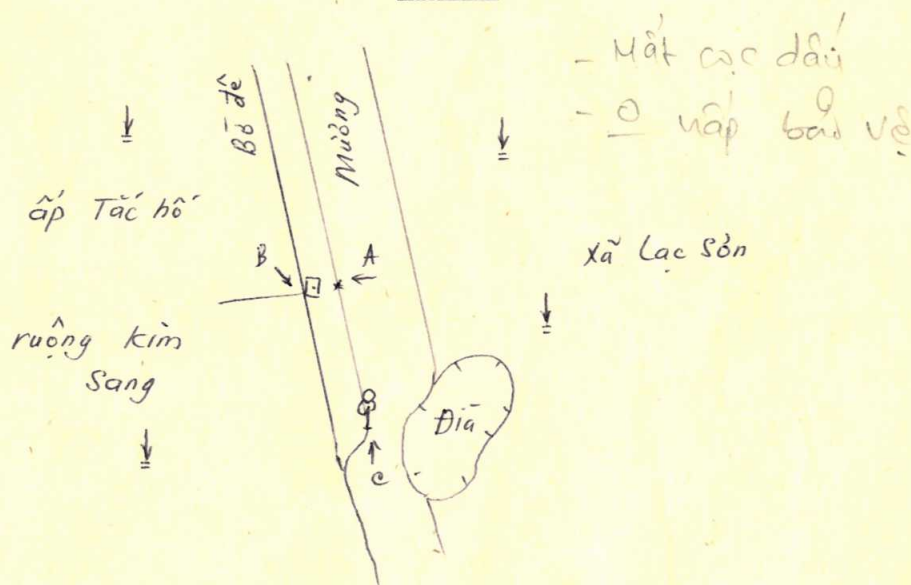 - Mất cọc dấu
- O nắp bảo vệ
Bờ đê
Mương
ấp Tắc hố
Xã Lạc Sơn
B
A
ruộng kim
Sang
Đìa
C